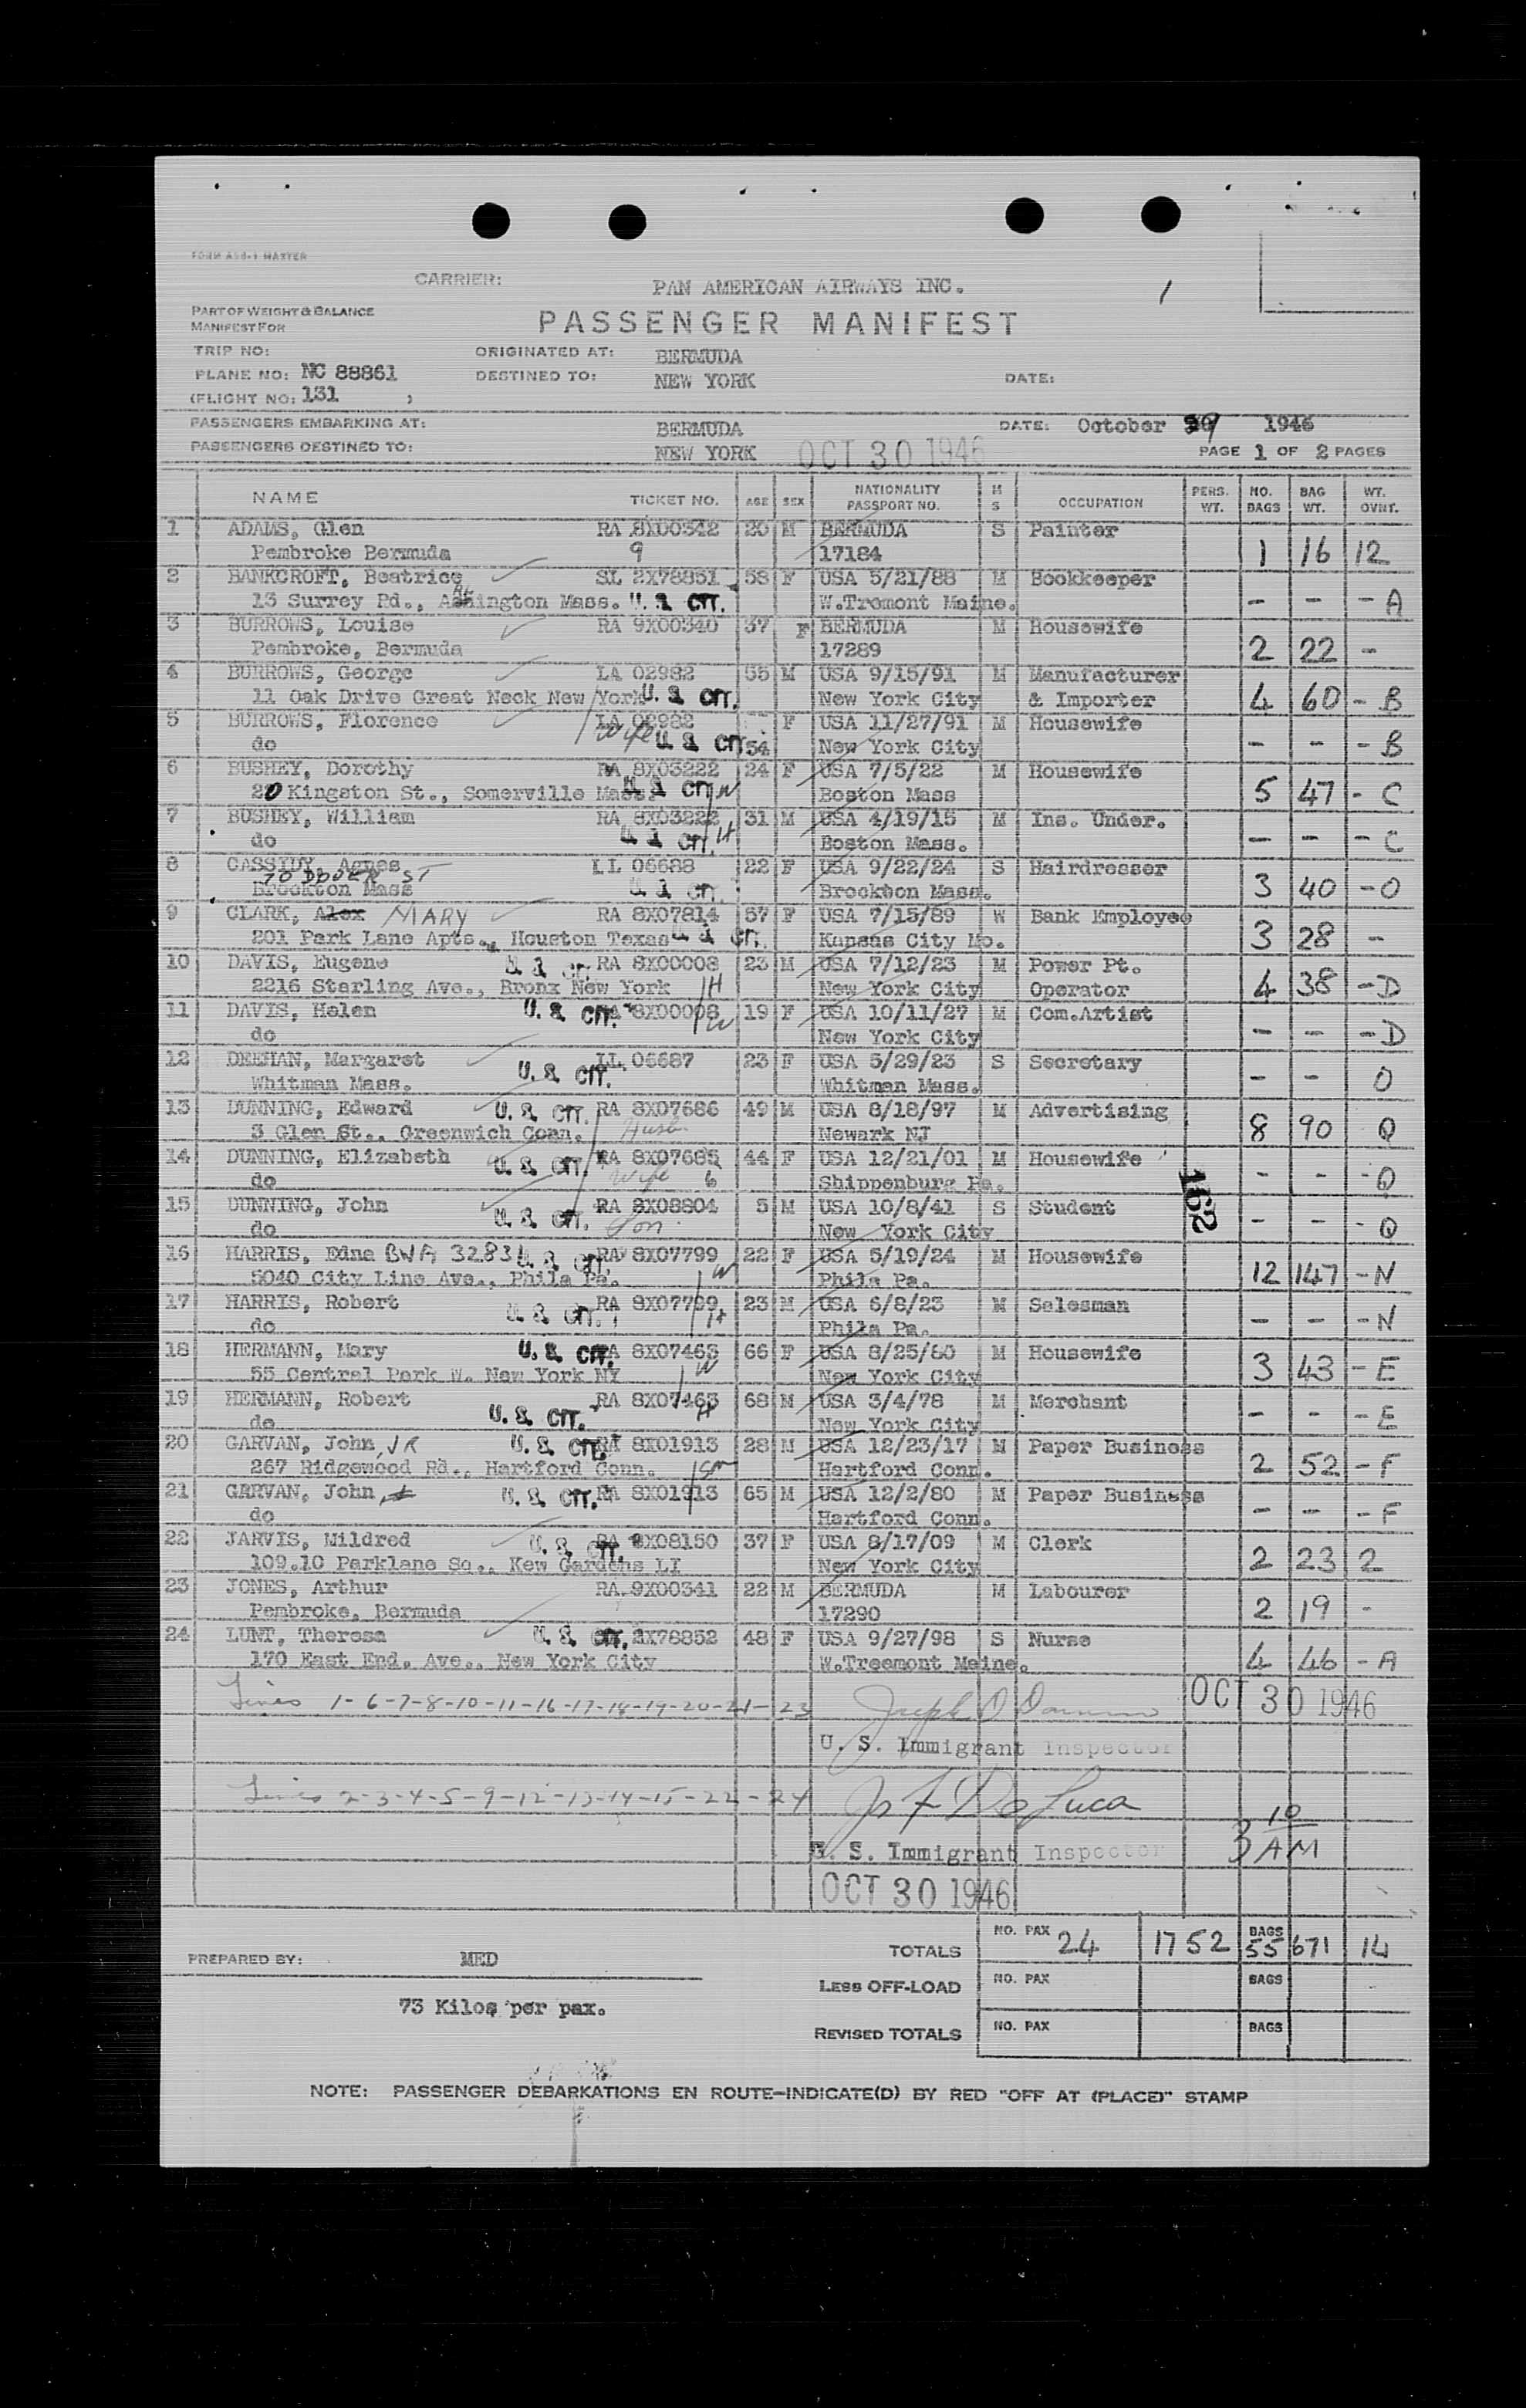 FORM A50-1 MASTER
CARRIER: PAN AMERICAN AIRWAYS INC. 1
PART OF WEIGHT & BALANCE
MANIFEST FOR
PASSENGER MANIFEST
TRIP NO: ORIGINATED AT: BERMUDA
PLANE NO: NC 88861 DESTINED TO: NEW YORK DATE:
(FLIGHT NO: 131 )
PASSENGERS EMBARKING AT: BERMUDA DATE: October 29 1946
PASSENGERS DESTINED TO: NEW YORK OCT 30 1946 PAGE 1 OF 2 PAGES
NAME TICKET NO. AGE SEX NATIONALITY PASSPORT NO. M S OCCUPATION PERS. WT. NO. BAGS BAG WT. WT. OVHT.
1 ADAMS, Glen RA 8X00342 20 M BERMUDA S Painter
Pembroke Bermuda 9 17184 1 16 12
2 BANKCROFT, Beatrice SL 2X78851 58 F USA 5/21/88 M Bookkeeper
13 Surrey Rd., Mass. U. S. CIT. W.Tremont Maine. - - - A
3 BURROWS, Louise RA 9X00340 37 F BERMUDA M Housewife
Pembroke, Bermuda 17289 2 22 -
4 BURROWS, George LA 02982 55 M USA 9/15/91 M Manufacturer
11 Oak Drive Great Neck New York U. S. CIT. New York City & Importer 4 60 - B
5 BURROWS, Florence LA 02982 F USA 11/27/91 M Housewife
do wife U. S. CIT. 54 New York City - - - B
6 BUSHEY, Dorothy RA 8X03222 24 F USA 7/5/22 M Housewife
20 Kingston St., Somerville Mass. U. S. CIT. W Boston Mass 5 47 - C
7 BUSHEY, William RA 8X03222 31 M USA 4/19/15 M Ins. Under.
do U. S. CIT. H Boston Mass. - - - C
8 CASSIDY, Agnes LL 06688 22 F USA 9/22/24 S Hairdresser
70 DOVER ST
Brockton Mass U. S. CIT. Brockton Mass. 3 40 - O
9 CLARK, Alex MARY RA 8X07814 57 F USA 7/15/89 W Bank Employee
201 Park Lane Apts., Houston Texas U. S. CIT. Kansas City Mo. 3 28 -
10 DAVIS, Eugene U. S. CIT. RA 8X00008 23 M USA 7/12/23 M Power Pt.
2216 Starling Ave., Bronx New York H New York City Operator 4 38 - D
11 DAVIS, Helen U. S. CIT. RA 8X00008 19 F USA 10/11/27 M Com.Artist
do W New York City - - - D
12 DEEHAN, Margaret LL 06687 23 F USA 5/29/23 S Secretary
Whitman Mass. U. S. CIT. Whitman Mass. - - O
13 DUNNING, Edward U. S. CIT. RA 8X07686 49 M USA 8/18/97 M Advertising
3 Glen St., Greenwich Conn. Husb. Newark NJ 8 90 Q
14 DUNNING, Elizabeth U. S. CIT. RA 8X07685 44 F USA 12/21/01 M Housewife
do Wife 6 Shippenburg Pa. - - - Q
15 DUNNING, John U. S. CIT. RA 8X08804 5 M USA 10/8/41 S Student
do Son. New York City - - - Q
16 HARRIS, Edna BWA 32831 U. S. CIT. RA 8X07799 22 F USA 5/19/24 M Housewife
5040 City Line Ave., Phila Pa. W Phila Pa. 12 147 - N
17 HARRIS, Robert U. S. CIT. RA 8X07799 23 M USA 6/8/23 M Salesman
do H Phila Pa. - - - N
18 HERMANN, Mary U. S. CIT. RA 8X07463 66 F USA 8/25/80 M Housewife
55 Central Park W. New York NY W New York City 3 43 - E
19 HERMANN, Robert U. S. CIT. RA 8X07463 68 M USA 3/4/78 M Merchant
do H New York City - - - E
20 GARVAN, John, JR U. S. CIT. RA 8X01913 28 M USA 12/23/17 M Paper Business
267 Ridgewood Rd., Hartford Conn. son Hartford Conn. 2 52 - F
21 GARVAN, John U. S. CIT. RA 8X01913 65 M USA 12/2/80 M Paper Business
do Hartford Conn. - - - F
22 JARVIS, Mildred U. S. CIT. RA 8X08150 37 F USA 8/17/09 M Clerk
109.10 Parklane So., Kew Gardens LI New York City 2 23 2
23 JONES, Arthur RA 9X00341 22 M BERMUDA M Labourer
Pembroke, Bermuda 17290 2 19 -
24 LUNT, Theresa U. S. CIT. 2X78852 48 F USA 9/27/98 S Nurse
170 East End. Ave., New York City W.Treemont Maine. 4 46 - A
162
Lines 1-6-7-8-10-11-16-17-18-19-20-21-23 Joseph D OCT 30 1946
U. S. Immigrant Inspector
Lines 2-3-4-5-9-12-13-14-15-22-24 De Luca
U. S. Immigrant Inspector 3 10 AM
OCT 30 1946
TOTALS NO. PAX 24 1752 BAGS 55 671 14
PREPARED BY: MED
LESS OFF-LOAD NO. PAX BAGS
73 Kilos per pax.
REVISED TOTALS NO. PAX BAGS
NOTE: PASSENGER DEBARKATIONS EN ROUTE-INDICATE(D) BY RED "OFF AT (PLACE)" STAMP